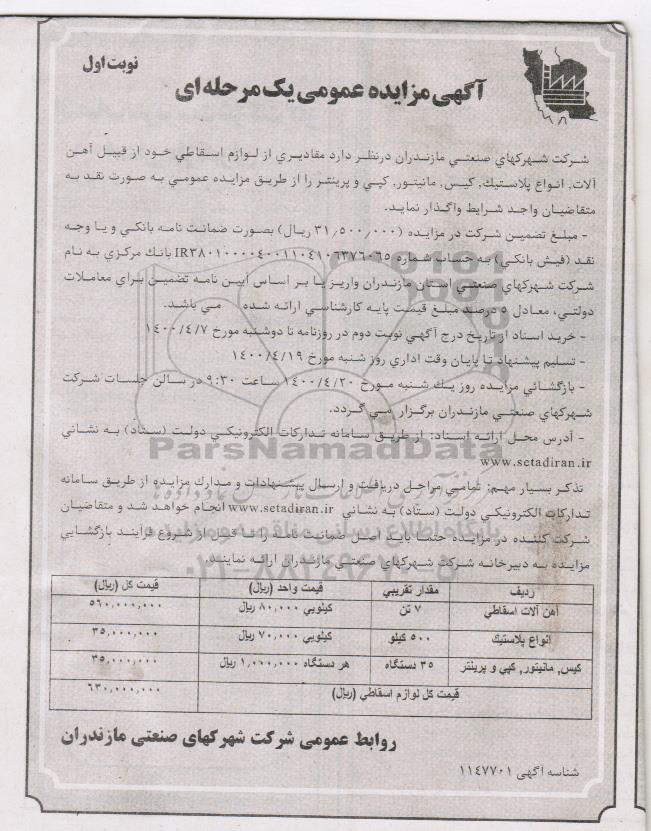 نوبت اول
آگهی مزایده عمومی یک مرحله ای
شرکت شهرکهای صنعتی مازندران درنظر دارد مقادیری از لوازم اسقاطی خود از قبیل آهن
آلات, انواع پلاستیک, کیس, مانیتور, کپی و پرینتر را از طریق مزایده عمومی به صورت نقد به
متقاضیان واجد شرایط واگذار نماید.
- مبلغ تضمین شرکت در مزایده (۳۱/۵۰۰/۰۰۰ ریال) بصورت ضمانت نامه بانکی و یا وجه
نقد (فیش بانکی) به حساب شماره IR۳۸۰۱۰۰۰۰۴۰۰۱۱۰۴۱۰۶۳۷۶۰۶۵ بانک مرکزی به نام
شرکت شهرکهای صنعتی استان مازندران واریز یا بر اساس آیین نامه تضمین برای معاملات
دولتی، معادل ۵ درصد مبلغ قیمت پایه کارشناسی ارائه شده می باشد.
- خرید اسناد از تاریخ درج آگهی نوبت دوم در روزنامه تا دوشنبه مورخ ۱۴۰۰/۴/۷
- تسلیم پیشنهاد تا پایان وقت اداری روز شنبه مورخ ۱۴۰۰/۴/۱۹
- بازگشائی مزایده روز یک شنبه مورخ ۱۴۰۰/۴/۲۰ ساعت ۹:۳۰ در سالن جلسات شرکت
شهرکهای صنعتی مازندران برگزار می گردد.
- آدرس محل ارائه اسناد: از طریق سامانه تدارکات الکترونیکی دولت (ستاد) به نشانی
www.setadiran.ir
تذکر بسیار مهم: تمامی مراحل دریافت و ارسال پیشنهادات و مدارک مزایده از طریق سامانه
تدارکات الکترونیکی دولت (ستاد) به نشانی www.setadiran.ir انجام خواهد شد و متقاضیان
شرکت کننده در مزایده حتما باید اصل ضمانت نامه را تا قبل از شروع فرآیند بازگشایی
مزایده به دبیرخانه شرکت شهرکهای صنعتی مازندران ارائه نمایند.
ParsNamadData
ردیف مقدار تقریبی قیمت واحد (ریال) قیمت کل (ریال)
آهن آلات اسقاطی ۷ تن کیلویی ۸۰,۰۰۰ ریال ۵۶۰,۰۰۰,۰۰۰
انواع پلاستیک ۵۰۰ کیلو کیلویی ۷۰,۰۰۰ ریال ۳۵,۰۰۰,۰۰۰
کیس, مانیتور, کپی و پرینتر ۳۵ دستگاه هر دستگاه ۱,۰۰۰,۰۰۰ ریال ۳۵,۰۰۰,۰۰۰
قیمت کل لوازم اسقاطی (ریال) ۶۳۰,۰۰۰,۰۰۰
روابط عمومی شرکت شهرکهای صنعتی مازندران
شناسه آگهی ۱۱۴۷۷۰۱